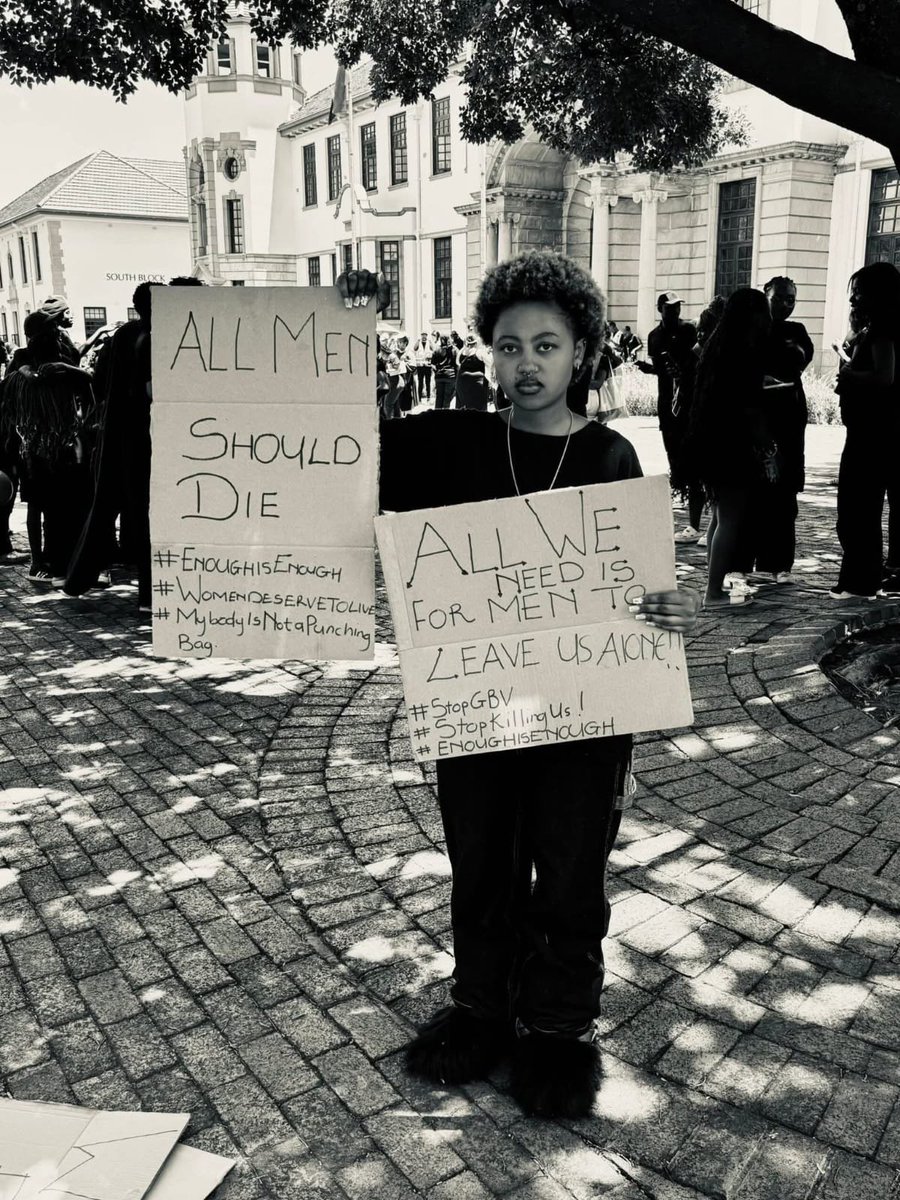 SOUTH BLOCK
ALL MEN
SHOULD
DIE
#ENOUGHISENOUGH
#WOMENDESERVETOLIVE
#MybodyIsNotaPunching
Bag.
ALL WE
NEED IS
FOR MEN TO
LEAVE US ALONE!!
#StopGBV
#StopKillingUs!
#ENOUGHISENOUGH